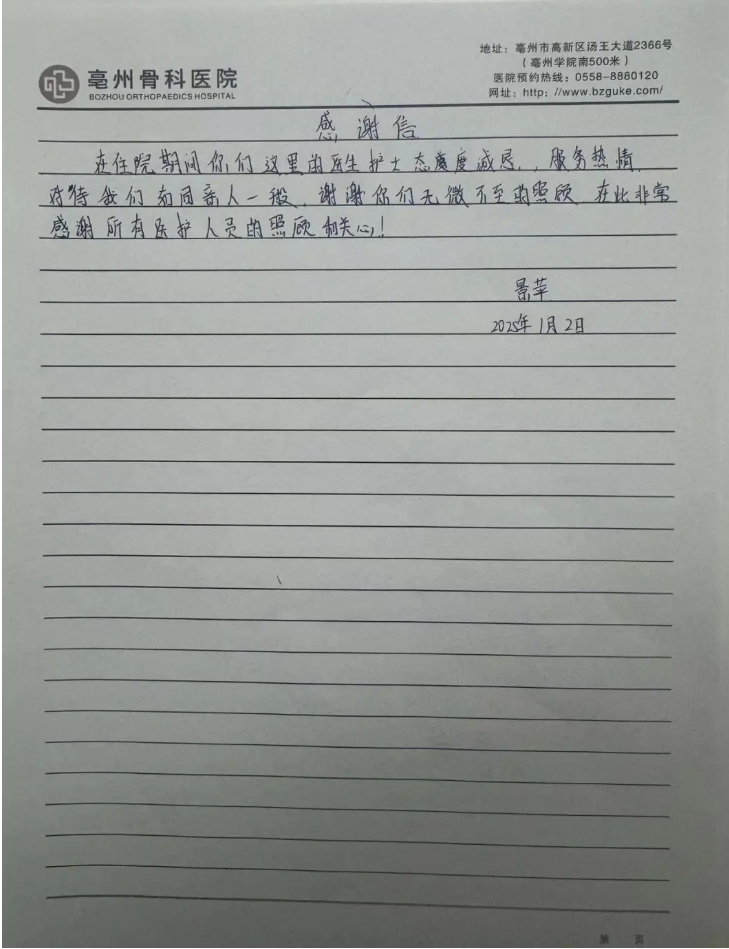 亳州骨科医院
BOZHOU ORTHOPAEDICS HOSPITAL
地址：亳州市高新区汤王大道2366号
（亳州学院南500米）
医院预约热线：0558-8880120
网址：http：//www.bzguke.com/
感谢信
在住院期间你们这里的医生护士态度诚恳，服务热情，
对待我们如同亲人一般、谢谢你们无微不至的照顾，在此非常
感谢所有医护人员的照顾和关心！
景苹
2025年1月2日
第 页